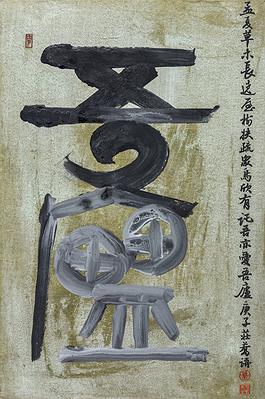 孟夏草木長遶屋樹扶疏眾鳥欣有託吾亦愛吾廬庚子莊
吾廬